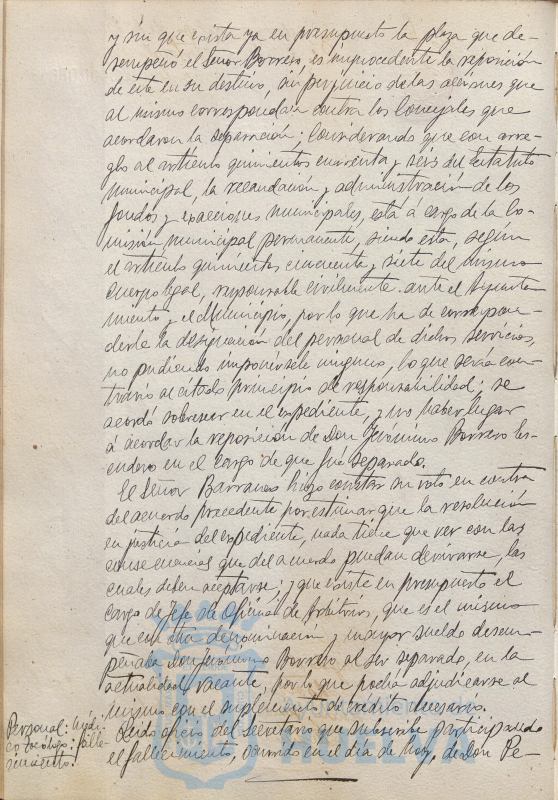 y sin que exista ya en presupuesto la plaza que de-
sempeñó el Señor Borrero, es improcedente la reposición
de este en su destino, sin perjuicio de las acciones que
al mismo correspondan contra los Concejales que
acordaron la separación; Considerando que con arre-
glo al artículo quinientos cincuenta y seis del Estatuto
municipal, la recaudación y administración de los
fondos y exacciones municipales, está á cargo de la Co-
misión municipal permanente, siendo esta, según
el artículo quinientos cincuenta y siete del mismo
cuerpo legal, responsable civilmente ante el Ayunta-
miento y el Municipio, por lo que ha de correspon-
derle la designación del personal de dichos servicios,
no pudiendo imponérsele ninguno, lo que sería con-
trario al citado principio de responsabilidad; se
acordó sobreseer en el expediente, y no haber lugar
á acordar la reposición de Don Jerónimo Borrero
en el cargo de que fué separado.
El Señor Barranco hizo constar su voto en contra
del acuerdo precedente por estimar que la resolución
en justicia del expediente, nada tiene que ver con las
consecuencias que del acuerdo puedan derivarse, las
cuales deben aceptarse; y que existe en presupuesto el
cargo de Jefe de Oficina de Arbitrios, que es el mismo
que con otra denominacion y mayor sueldo desem-
peñaba Don Jerónimo Borrero al ser separado, en la
actualidad vacante, por lo que podía adjudicarse al
mismo con el suplemento de crédito necesario.
Personal: Médi-
co tocólogo: falle-
cimiento.
Leido oficio del Secretario que subscribe participando
el fallecimiento, ocurrido en el día de hoy, de Don Pe-
HUELVA